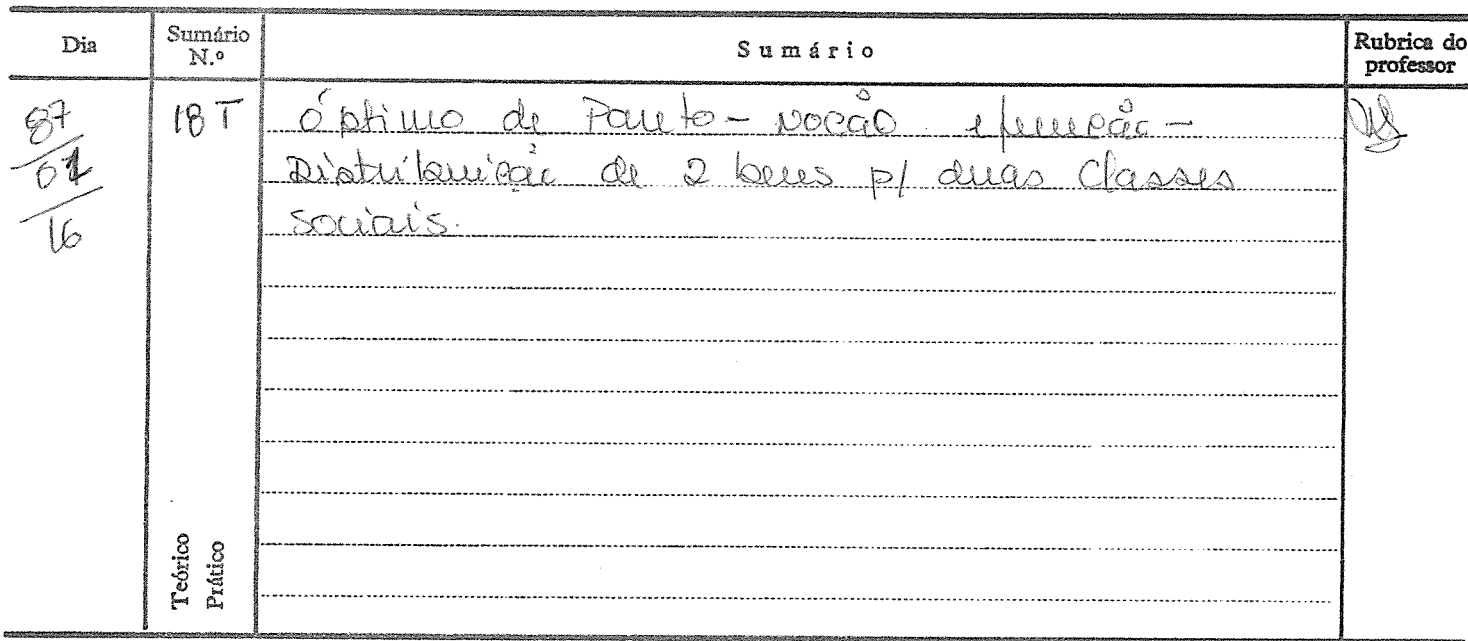 Dia
Sumário N.º
Sumário
Rubrica do professor
87
01
16
18 T
Óptimo de Pareto - noção
Distribuição de 2 bens p/ duas classes
sociais.
Teórico
Prático